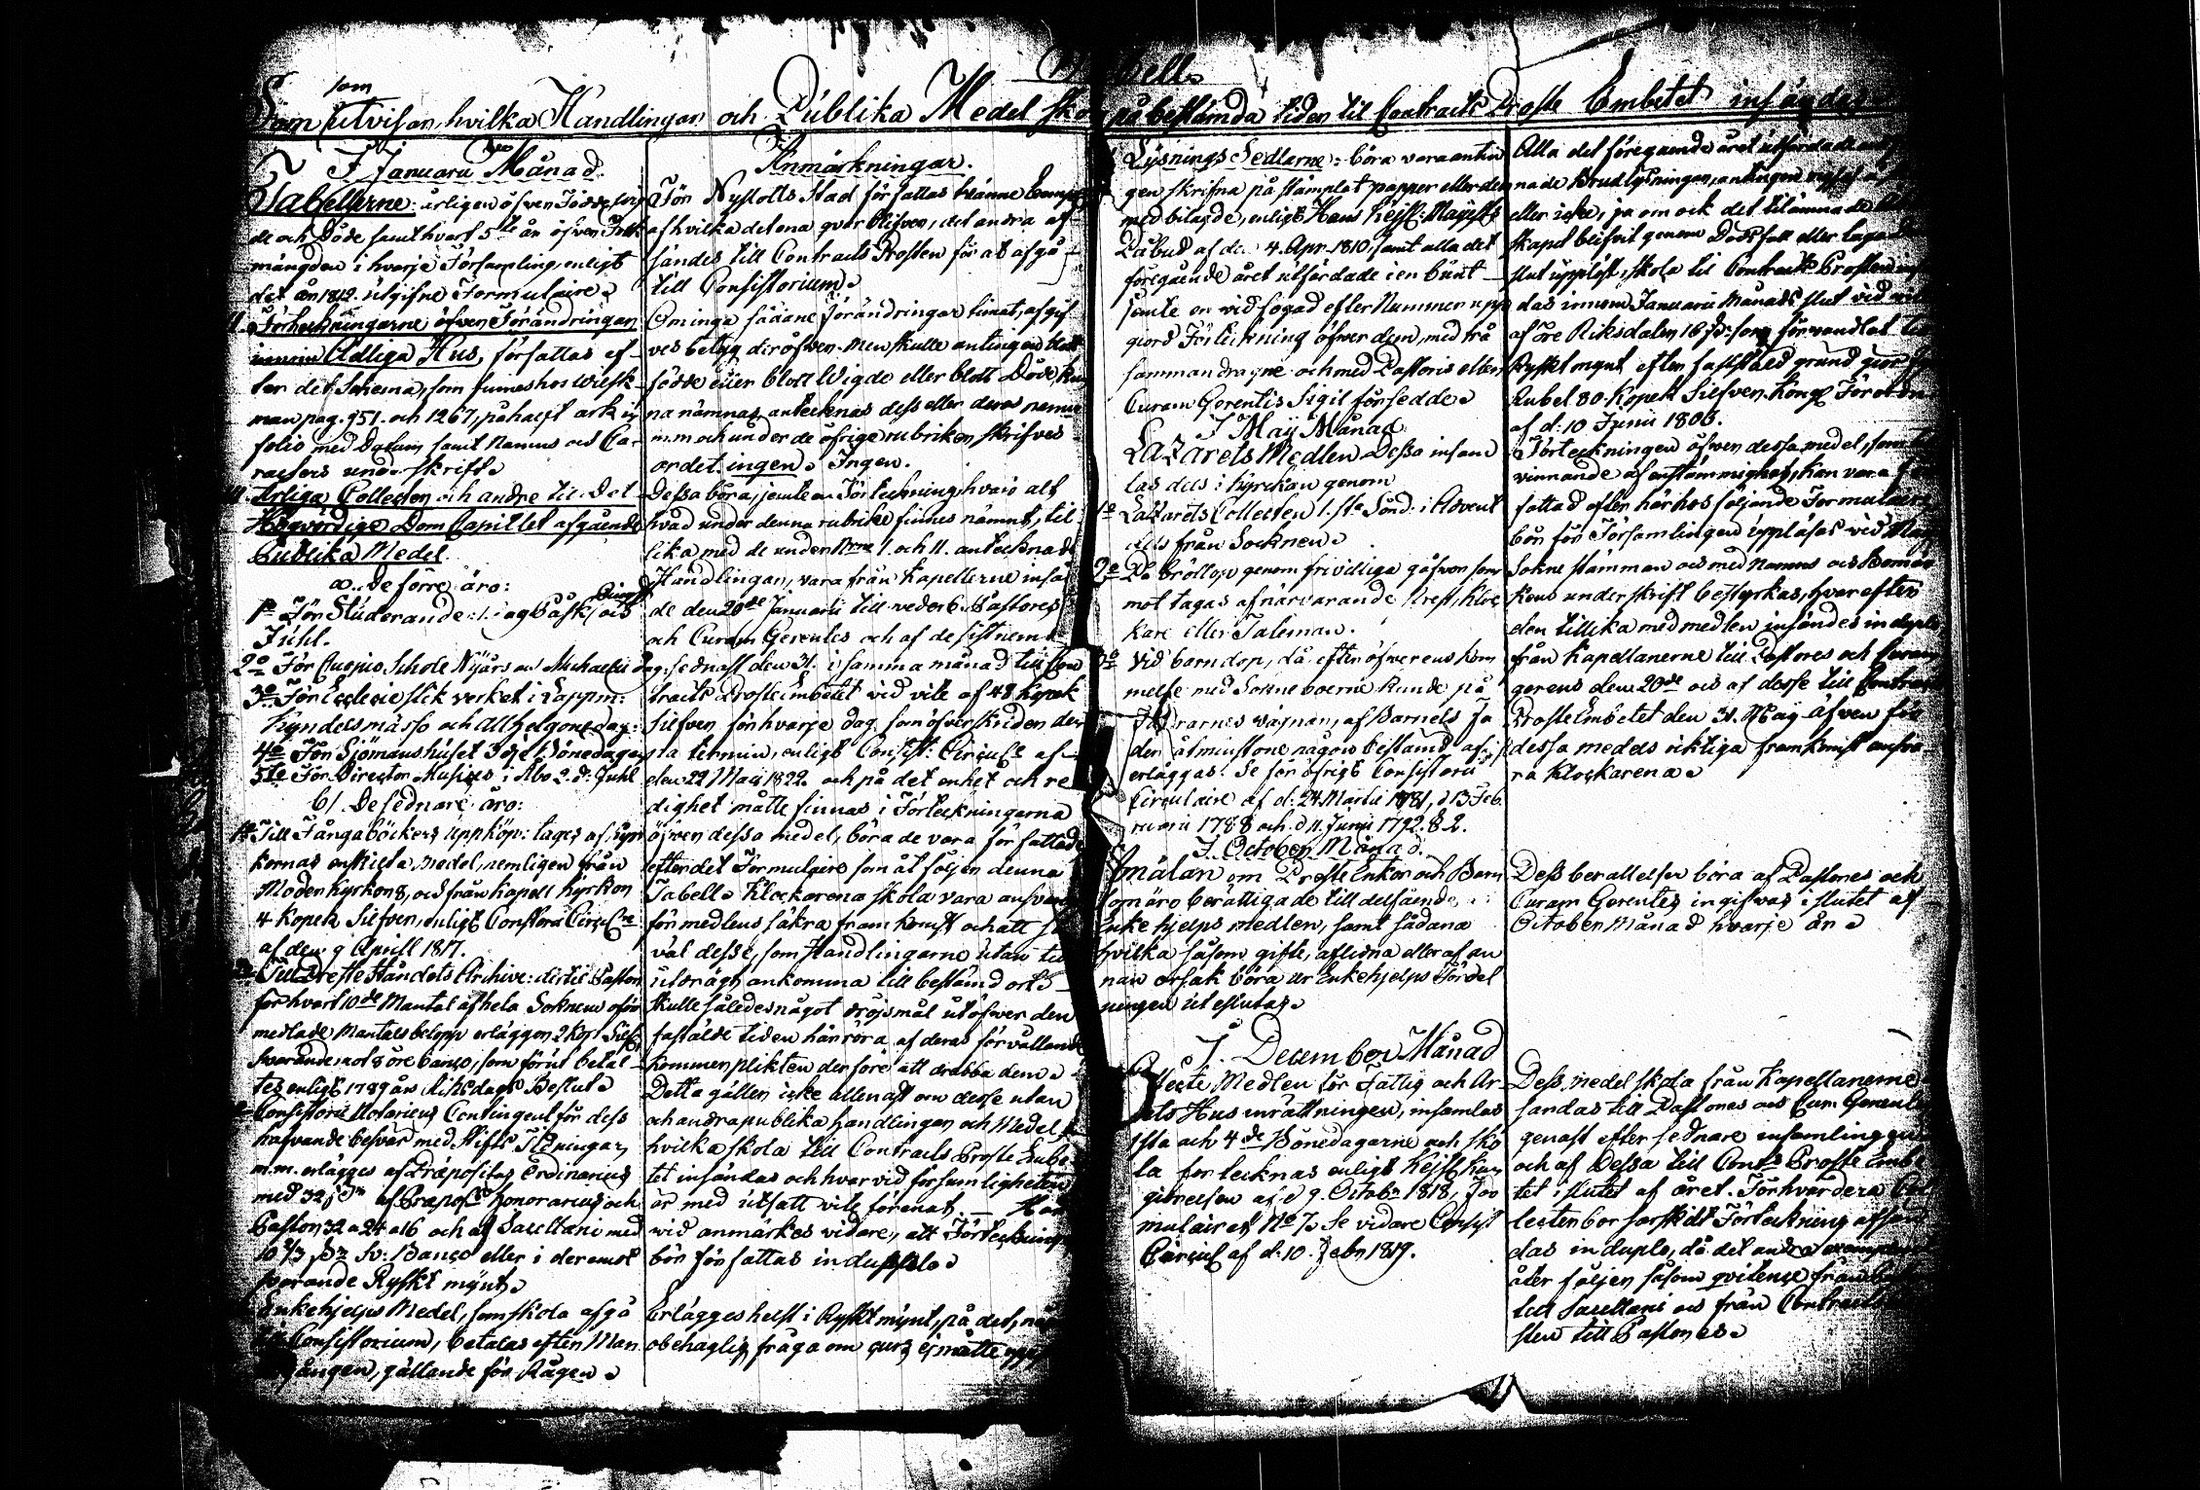 Tabell
som
Som utvisar, hvilka Handlingar och Publika Medel skola på bestämda tiden til Contracts Prosте Embetet insändas
I Januarii Månad.
Tabellerne: årligen öfver Födde
de och Döde samt hvart 5te år öfver Folk
mängden i hvarje Församling, enligt
det år 1812. utgifne Formulaire
Förteckningarne öfver Förändringar
innom Adliga Hus, författas ef-
ter det Schema, som finnes hos Wilsk-
man pag. 951. och 1267, på halft ark in
folio med Datum samt Namns och Ca-
racters underskrift
Årliga Collecter och andre til Det
Högvördige Dom Capitlet afgående
Publika Medel
a. De förre äro:
1o För Studerande: Påsk och
Juhl.
2o För Cuopio Schole Nyårs och Michaelii dag.
3o För Ecclesiastik verket i Lappm:
Kyndelsmässo och Allhelgonedag:
4o För Sjömanshuset 3dje Bönedagen
5te För Director Musices i Åbo 2. d: Juhl
b/ De sednare äro:
Till Fångaböckers uppköp: tages af kyr-
kornas enskilta medel, nemligen från
Moderkyrkor 8, och från Kapell kyrkor
4 Kopek Silfver, enligt Consistorii Circul.re
af den 9 Aprill 1817.
Till Preste Ståndets Archive: dertil Pastor
för hvart 10de Mantal af hela Soknens oför
medlade Mantals belopp erlägger 2 Kop: Silf.
svarande mot 8 öre banco, som förut betal-
tes enligt 1789 års Riksdags Beslut
Consistorii Notarius Contingent för dess
hafvande besvär med Stifts Tidningar
m.m. erlägges af Præpositus Ordinarius
med 32 af Præpos: honorarius och
Pastor 32 a 24 a 16 och af Sacellani med
10 2/3 Sv: Banco eller i deremot
svarande Ryskt mynt
Enkehjelps Medel, som skola afgå
till Consistorium, betalas efter Mar
kegången, gällande för Rågen
Anmärkningar.
För Nystotts Stad författas tvänne Exempl.
af hvilka det ena qvar blifver, det andra af
sändes till Contracts Prosten för at afgå
till Consistorium
Om inga sådane förändringar timat, afgif
ves betyg deröfver. Men skulle antingen blott
födde eller blott Wigde eller blott Döde kun
na nämnas, antecknas dess eller deras namn
m.m och under de öfrige rubriker skrifves
ordet ingen Ingen.
Dessa böra, jemte en Förteckning hvaris alt
hvad under denna rubrike finnes nämnt, til
lika med de under Nrne I. och II. antecknade
Handlingar, vara från Kapellerne insän
de den 20de Januarii till vederb. Pastores
och Curam Gerentes och af de sistnemde
sednast den 31. i samma månad till Con
tracts ProsteEmbetet vid vite af 48 Kopek
Silfver för hvarje dag, som öfverskrider den
na termin, enligt Consist: Circule af
den 22 Maij 1822. och på det enhet och re
dighet måtte finnas i Förteckningarna
öfver dessa medel, böra de vara författade
efter det Formulaire som åtföljer denna
Tabell Klockarena skola vara ansvara
för medlens säkra framkomst och att så
väl desse, som Handlingarne utan til
uldrägt ankomma till bestämd ort
Skulle således något dröjsmål utöfver den
fastälde tiden härröra af deras förvållande
kommer plikten derföre att drabba dem
Detta gäller icke allenast om desse utan
och andra publika handlingar och Medel
hvilka skola till Contracts Proste Embe
tet insändas och hvarvid försumligheten
är med utsatt vite förenat. — Här
wid anmärkes vidare, att Förteckning
bör författas in duplo
Erlägges helst i Ryskt mynt, på det, någ
obehaglig fråga om curs ej måtte upp
Lysnings Sedlarne: böra vara antin
gen skrifna på stämplat papper eller der
med bilagde, enligt Hans Kejs: Maj:ts
Påbud af de 4. Apr. 1810, samt alla det
föregående året utfärdade i en bunt
jemte en vidfogad efter Nummer upp
giord Förteckning öfver dem, med trå
sammandragne och med Pastoris eller
Curam Gerentis Sigil försedde
I Maij Månad.
Lazarets Medlen Dessa insam
las dels i kyrckan genom
1o Lazarets Collecten 1.sta Sönd: i Advent
dels från Socknen
2o På bröllop genom frivilliga gåfvor som
mottagas af närvarande Prest, Kloc
kare eller Taleman.
3o Vid barndop, då efter öfverenskom
melse med Sokneboerne kunde på
Fadrarnes vägnar, af Barnets Fa
der åtminstone någon bestämd afgift
erläggas. Se för öfrigt Consistorii
Circulaire af d: 24 Martii 1781, d 13 Feb.
ruarii 1788 och d 11. Junii 1792. § 2.
I. October Månad.
Anmälan om Proste Enkor och Barn
som äro berättigade till delsående
Enkehjelps medlen, samt sådana
hvilka såsom gifte, aflidna eller af an
nan orsak böra ur Enkehjelps Fördel
ningen uteslutas
I. December Månad
Collecte Medlen för Fattig och Ar
bets Hus inrättningen, insamlas
1sta och 4de Bönedagarne och sko
la fortecknas enligt Kejs: Kun
gjörelsen af d 9. Octobr 1818, For
mulairet No 7. Se vidare Consist
Circul af d: 10. Febr 1819.
Alla det föregående året utfärdade
nade Brudlysningar, antingen
eller icke, ja om ock det tilämnade
skapet blifvit genom Dödsfall eller laga
slut upplöst, skola til Contracts Prosten
das innom Januarii Månads slut vid
af öre Riksdaler 16 som förvandlat
Ryskt mynt efter fastställd grund giör
Rubel 80. Kopek Silfver. Kongl Förordn
af d: 10 Junii 1803.
Förteckningen öfver dessa medel, som till
vinnande af enstämmighet, kan vara
fattad efter härhos följande Formulaire
bör för Församlingen uppläsas vid Maj
Sokne stämman och med Namns och Bomär
kens underskrift bestyrkas, hvarefter
den tillika med medlen insändes in duplo
från Kapellanerne till Pastores och Curam
gerens den 20de och af desse till Contracts
Proste Embetet den 31. Maij. Äfven för
dessa medels riktiga framkomst ansva
ra Klockarena
Dess berättelser böra af Pastores och
Curam Gerentes ingifvas i slutet af
October Månad hvarje år
Dess medel skola från Kapellanerne
sändas till Pastores och Curam Gerentes
genast efter sednare insamling
och af Dessa till Contr. Proste Embe
tet i slutet af året. För hvardera Col
lecten bör särskildt Förteckning afsän
das in duplo, då det andra exemplaret
åter följer såsom qvitence från
till Sacellani och från Contracts
sten till Pastores